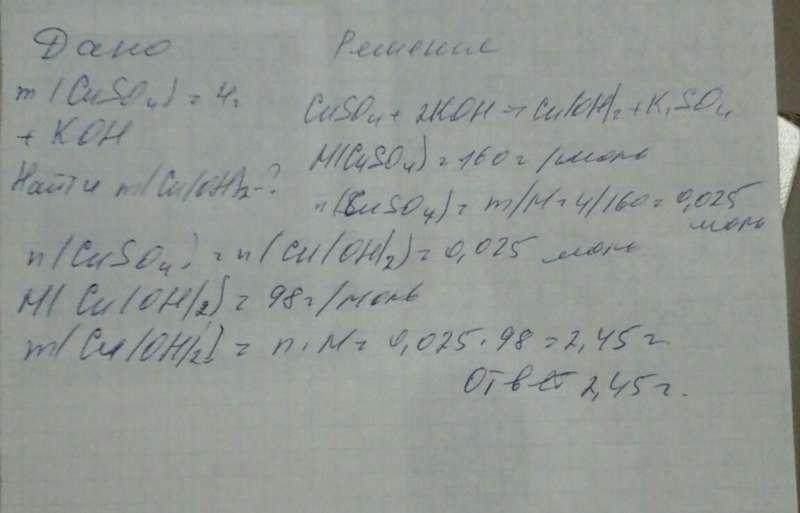 Дано
m(CuSO4) = 4г
+ KOH
Найти m(Cu(OH)2-?
Решения
CuSO4 + 2KOH → Cu(OH)2 + K2SO4
M(CuSO4) = 160г/моль
n(CuSO4) = m/M = 4/160 = 0,025 моль
n(CuSO4) = n(Cu(OH)2) = 0,025 моль
M(Cu(OH)2) = 98г/моль
m(Cu(OH)2) = n·M = 0,025·98 = 2,45г.
Ответ 2,45г.